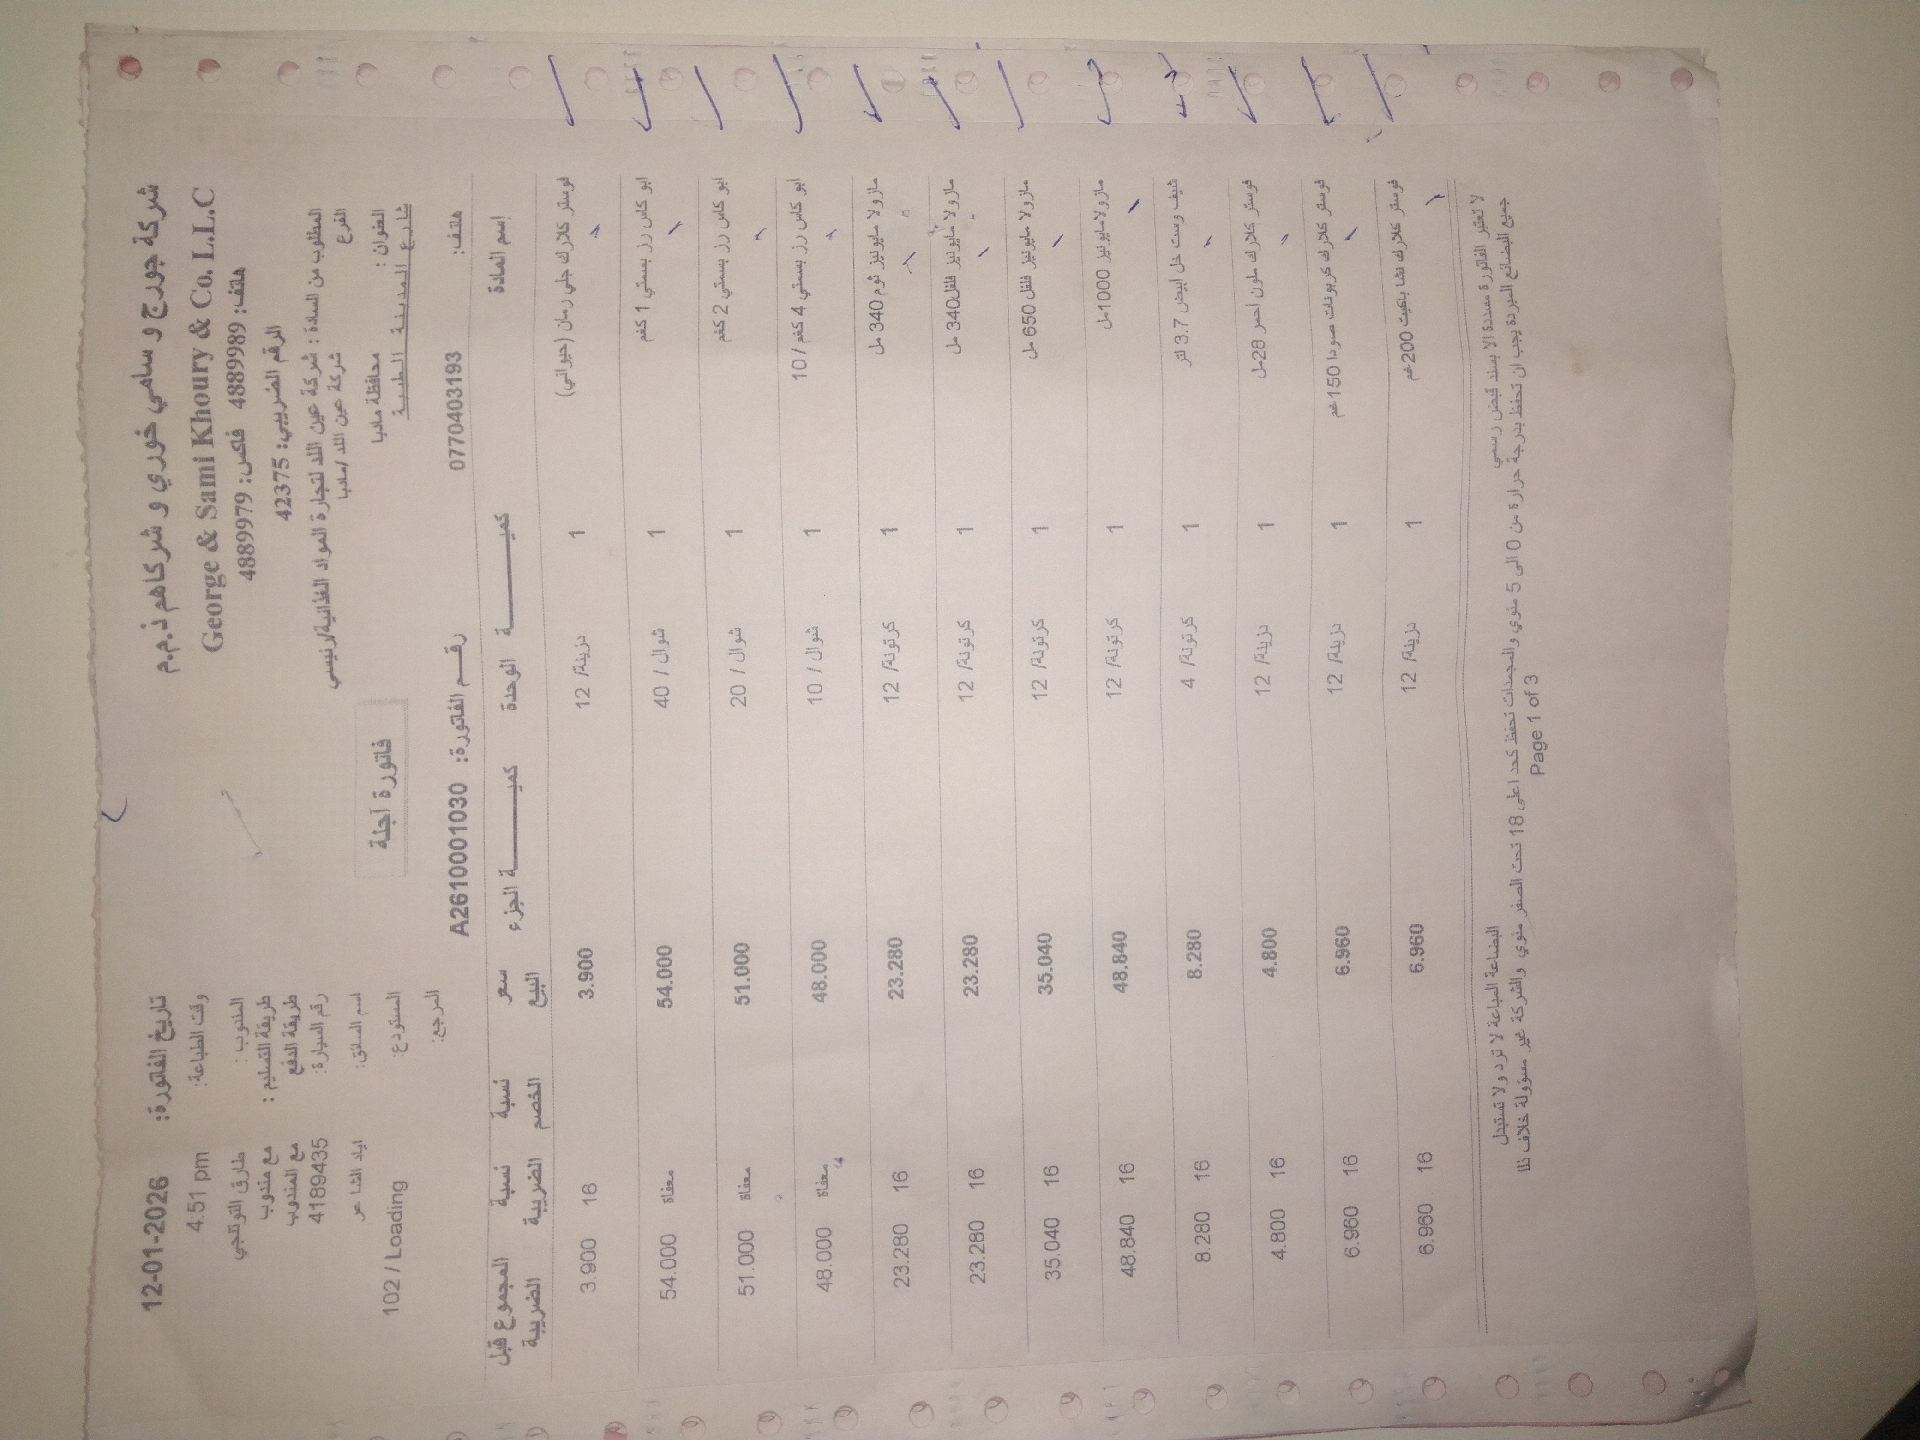 شركة جورج و سامي خوري و شركاهم ذ.م.م
George & Sami Khoury & Co. L.L.C
هاتف: 4889989 فاكس: 4889979
الرقم الضريبي: 42375
المطلوب من السادة : شركة عين اللد لتجارة المواد الغذائية/رئيسي
الفرع شركة عين اللد /مادبا
العنوان : محافظة مادبا
شارع المدينة الطبية
هاتف: 0770403193
فاتورة آجلة
رقم الفاتورة: A2610001030
تاريخ الفاتورة: 12-01-2026
وقت الطباعة: 4:51 pm
المندوب :
طريقة التسليم : مع مندوب
طريقة الدفع مع المندوب
رقم السيارة: 4189435
اسم السائق: اياد الشاعر
المستودع: 102 / Loading
المرجع:
إسم المادة كميــــــة الوحدة كميــــــة الجزء سعر البيع نسبة الخصم نسبة الضريبة المجموع قبل الضريبة
فوستر كلارك جلي رمان (حيواني) 1 دزينة/ 12 3.900 16 3.900
ابو كاس رز بسمتي 1 كغم 1 شوال / 40 54.000 معفاة 54.000
ابو كاس رز بسمتي 2 كغم 1 شوال / 20 51.000 معفاة 51.000
ابو كاس رز بسمتي 4 كغم / 10 1 شوال / 10 48.000 معفاة 48.000
مازولا مايونيز ثوم 340 مل 1 كرتونة/ 12 23.280 16 23.280
مازولا مايونيز فلفل340 مل 1 كرتونة/ 12 23.280 16 23.280
مازولا مايونيز فلفل 650 مل 1 كرتونة/ 12 35.040 16 35.040
مازولامايونيز 1000مل 1 كرتونة/ 12 48.840 16 48.840
شيف وست خل ابيض 3.7 لتر 1 كرتونة/ 4 8.280 16 8.280
فوستر كلارك ملون احمر 28مل 1 دزينة/ 12 4.800 16 4.800
فوستر كلارك كربونات صودا 150غم 1 دزينة/ 12 6.960 16 6.960
فوستر كلارك نشا باكيت 200غم 1 دزينة/ 12 6.960 16 6.960
لا تعتبر الفاتورة مسددة الا بسند قبض رسمي البضاعة المباعة لا ترد ولا تستبدل
جميع البضائع المبردة يجب ان تحفظ بدرجة حرارة من 0 الى 5 مئوي والمجمدات تحفظ كحد اعلى 18 تحت الصفر مئوي والشركة غير مسؤولة خلاف ذلك
Page 1 of 3